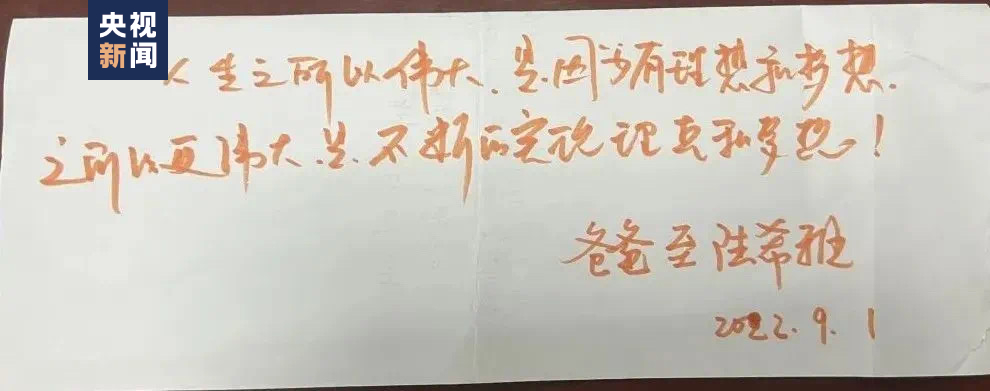 央视
新闻
人生之所以伟大、是因为有理想和梦想.
之所以更伟大、是、不断的实现理想和梦想!
爸爸至陆希雅
2022.9.1